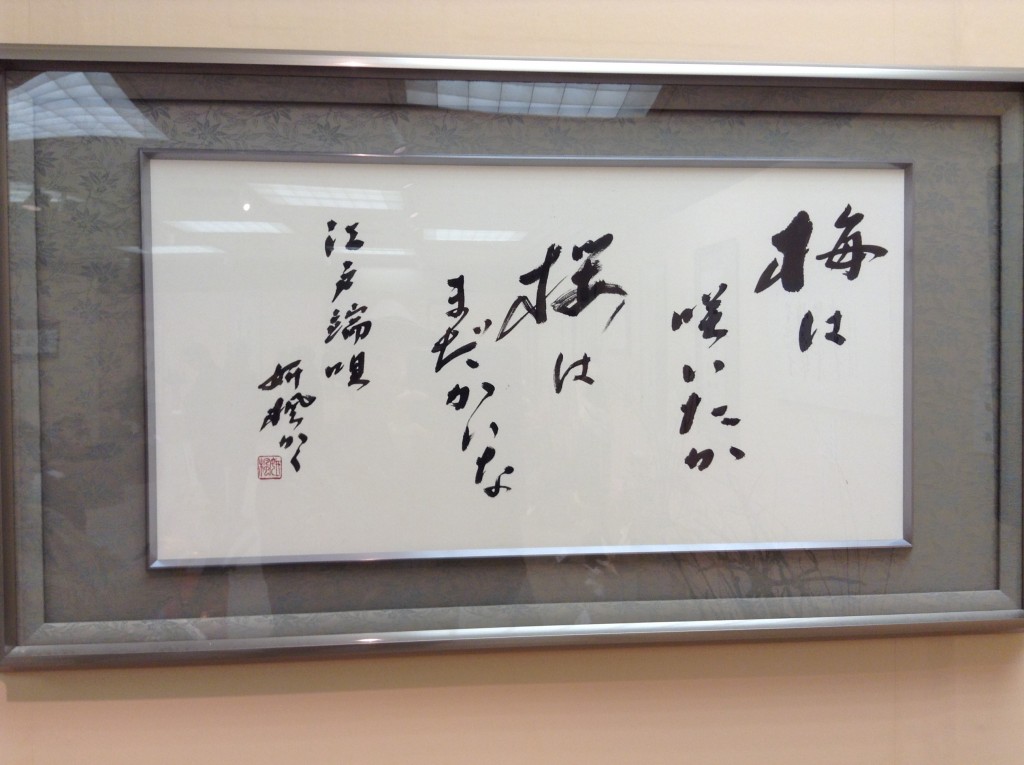 梅は
咲いたか
桜は
まだかいな
江戸端唄
妍楓かく